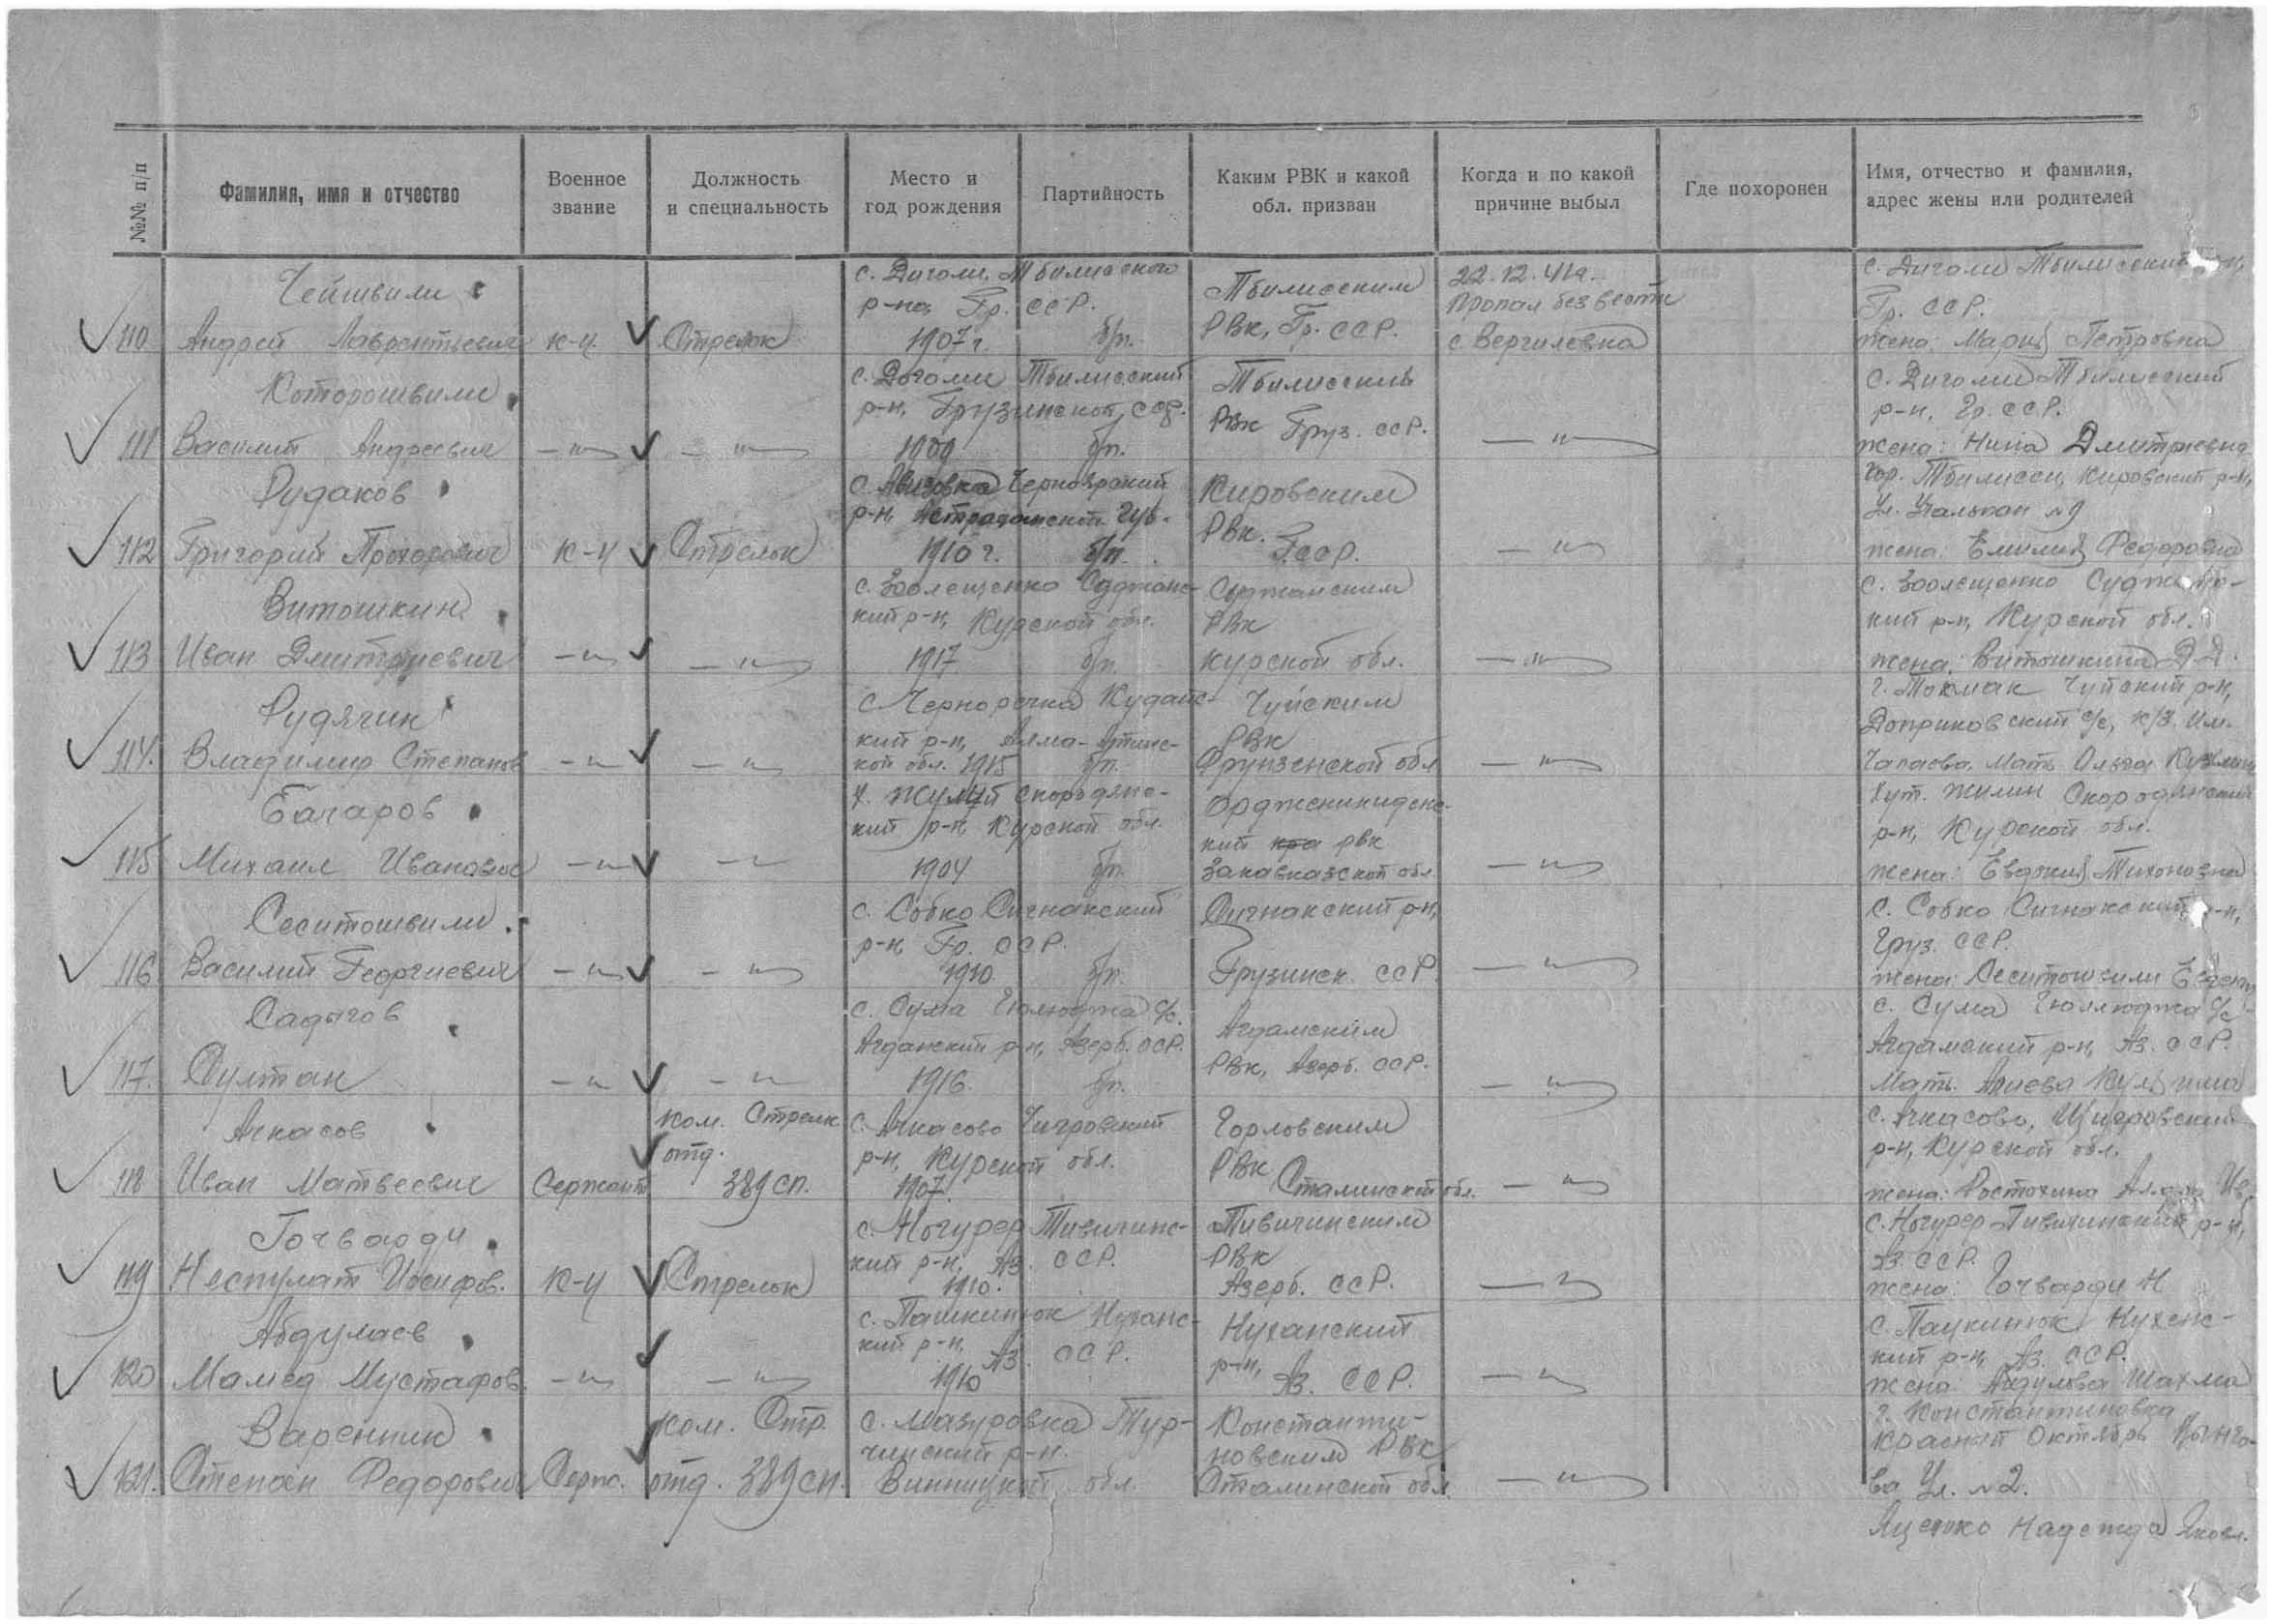 №№ п/п
Фамилия, имя и отчество
Военное звание
Должность и специальность
Место и год рождения
Партийность
Каким РВК и какой обл. призван
Когда и по какой причине выбыл
Где похоронен
Имя, отчество и фамилия, адрес жены или родителей
110
Чейшвили
Андрей Лаврентьевич
к-ц
Стрелок
с. Дигоми, Тбилисского
р-на, Гр. ССР.
1907 г.
б/п.
Тбилисским
РВК, Гр. ССР.
22.12.41г.
Пропал без вести
с. Вергилевка
с. Дигоми Тбилисский
Гр. ССР.
жена: Мария Петровна
111
Которошвили
Василий Андреевич
— " —
— " —
с. Дигоми Тбилисский
р-н, Грузинской ССР.
1909
б/п.
Тбилисский
РВК Груз. ССР.
— " —
с. Дигоми Тбилисский
р-н, Гр. ССР.
жена: Нина Дмитриевна
112
Рудаков
Григорий Прохорович
к-ц
Стрелок
с. Черноярский
р-н, Астраханской Губ.
1910 г.
б/п.
Кировским
РВК.
Г.ССР.
— " —
гор. Тбилисси, Кировский р-н,
Ул. №9
жена: Емилия Федоровна
113
Витошкин
Иван Дмитриевич
— " —
— " —
с. Зоолещенко Суджанс-
кий р-н, Курской обл.
1917
б/п.
Суджанским
РВК
Курской обл.
— " —
с. Зоолещенко
кий р-н, Курской обл.
жена: Витошкина Д.Д.
114.
Рудячик
Владимир Степанов
— " —
— " —
с. Чернореча Кудайс-
кий р-н, Алма-Атинс-
кой обл. 1915
б/п.
Чуйским
РВК
Фрунзенской обл
— " —
г. Токмак Чуйский р-н,
с/с, к/з. им.
Чапаева, Мать Ольга Кузьмин
115
Бачаров
Михаил Иванович
— " —
— " —
Скороднянс-
кий р-н, Курской обл.
1904
б/п.
Орджоникидзевс-
кий РВК
Закавказской обл
— " —
Хут. Жилин Скороднянский
р-н, Курской обл.
жена: Евдокия Тихоновна
116
Сеситошвили
Василий Георгиевич
— " —
— " —
с. Собко Сигнакский
р-н, Гр. ССР.
1910.
б/п.
Сигнакский р-н,
Грузинск. ССР
— " —
с. Собко Сигнакский р-н,
Груз. ССР.
жена: Сеситошвили
117.
Садыгов
Султан
— " —
— " —
с. Сума Гюлюджа с/с.
Агдамский р-н, Азерб. ССР.
1916.
б/п.
Агдамским
РВК, Азерб. ССР.
— " —
с. Сума с/с
Агдамский р-н, Аз. ССР.
Мать: Алиева
118
Ачкасов
Иван Матвеевич
Сержант
ком. Стрелк
отд.
389 сп.
с. Ачкасово Чигровский
р-н, Курской обл.
1907.
Горловским
РВК
Сталинской обл.
— " —
с. Ачкасово, Щигровский
р-н, Курской обл.
жена: Ростохина
119
Гочварди
Неспулат Иосифов.
к-ц
Стрелок
с. Ногурер Тивичинс-
кий р-н, Аз. ССР.
1910.
Тивичинским
РВК
Азерб. ССР.
— " —
с. Ногурер Тивичинский р-н,
Аз. ССР.
жена: Гочварди Н
120
Абдулаев
Мамед Мустафов.
— " —
— " —
с. Пашкинток Нуханс-
кий р-н, Аз. ССР.
1910
Нуханский
р-н,
Аз. ССР.
— " —
с. Нухенс-
кий р-н, Аз. ССР.
жена: Абдулова Шахма
121.
Вареник
Степан Федорович
Серж.
ком. Стр.
отд. 389 сп.
с. Мазуровка Тур-
чинский р-н.
Винницкой обл.
Константи-
новским РВК
Сталинской обл.
— " —
г. Константиновка
Красный Октябрь
ва Ул. №2.
Яценко Надежда Яковл.